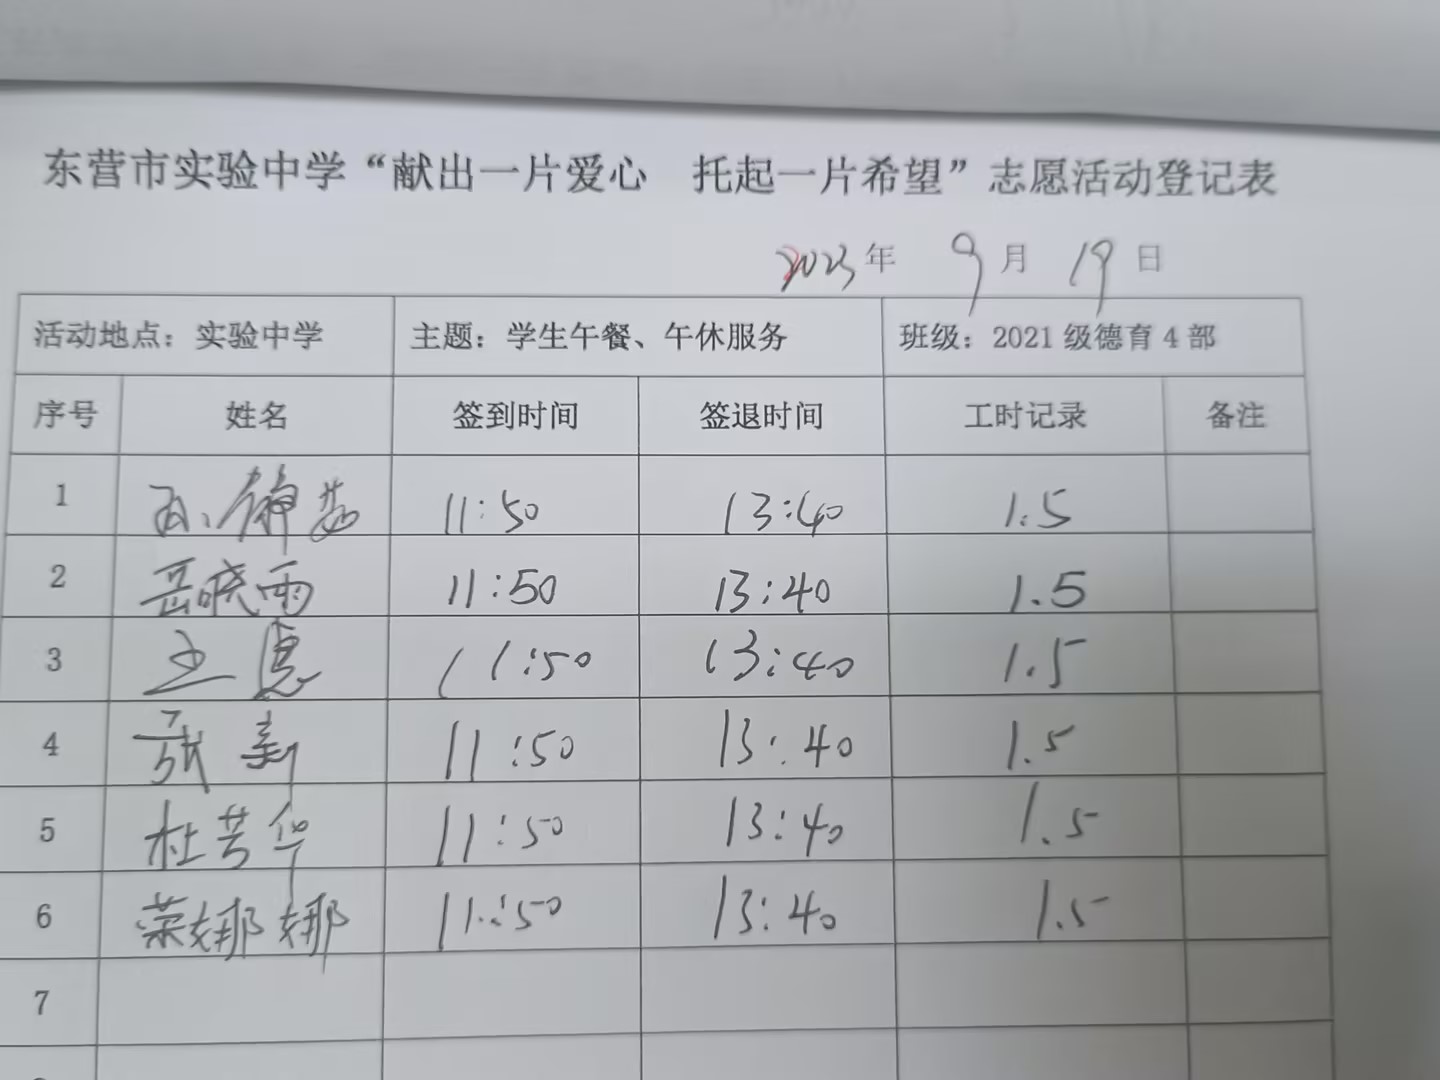 东营市实验中学“献出一片爱心 托起一片希望”志愿活动登记表
2023年 9月 19日
活动地点：实验中学 主题：学生午餐、午休服务 班级：2021级德育4部
序号 姓名 签到时间 签退时间 工时记录 备注
1 11:50 13:40 1.5
2 岳晓雨 11:50 13:40 1.5
3 王 11:50 13:40 1.5
4 张新 11:50 13:40 1.5
5 杜芳华 11:50 13:40 1.5
6 荣娜娜 11:50 13:40 1.5
7